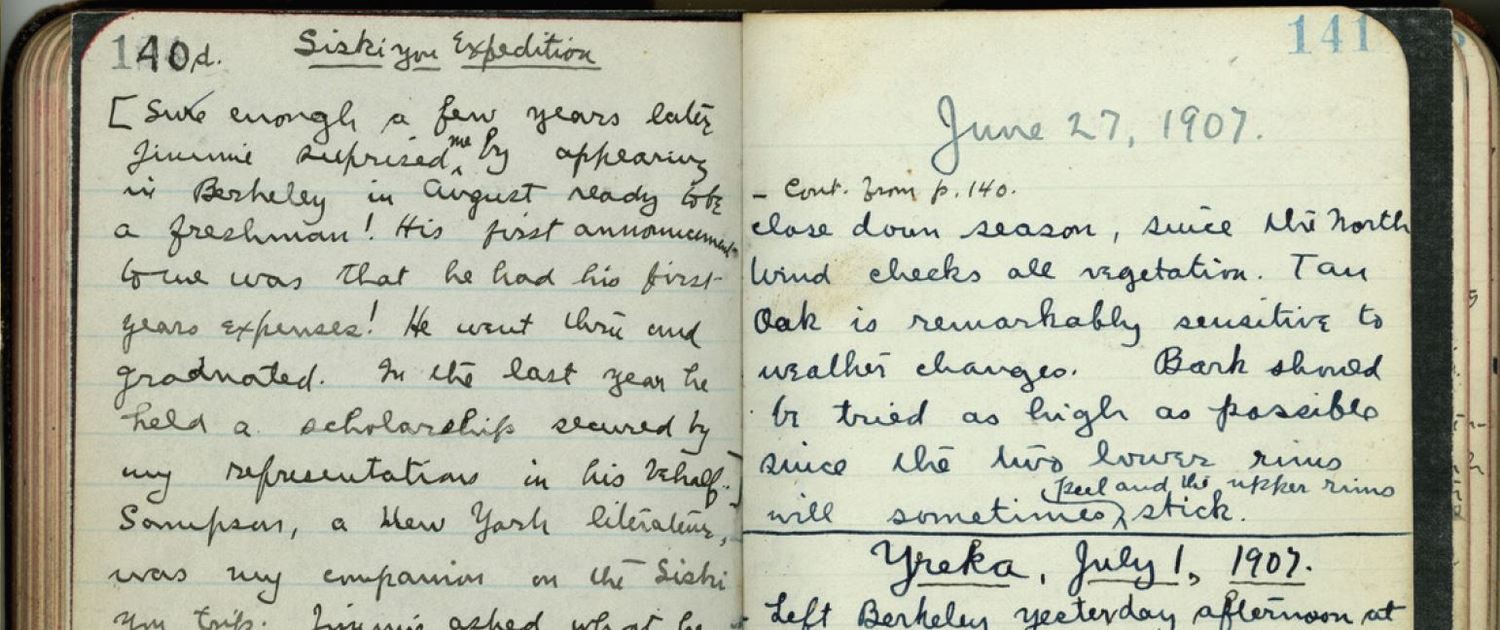 140d. Siskiyou Expedition
[Sure enough a few years later
Jimmie suprised me by appearing
in Berkeley in August ready to be
a freshman! His first announcement
to me was that he had his first
years expenses! He went thru and
graduated. In the last year he
held a scholarship secured by
my representations in his behalf.]
Sampson, a New York literateur,
was my companion on the Siski
you trip. Jimmie asked what he
141
June 27, 1907.
- Cont. from p. 140.
close down season, since the North
Wind checks all vegetation. Tan
Oak is remarkably sensitive to
weather changes. Bark should
be tried as high as possible
since the two lower rims
peel and the upper rims
will sometimes stick.
Yreka, July 1, 1907.
Left Berkeley yesterday afternoon at